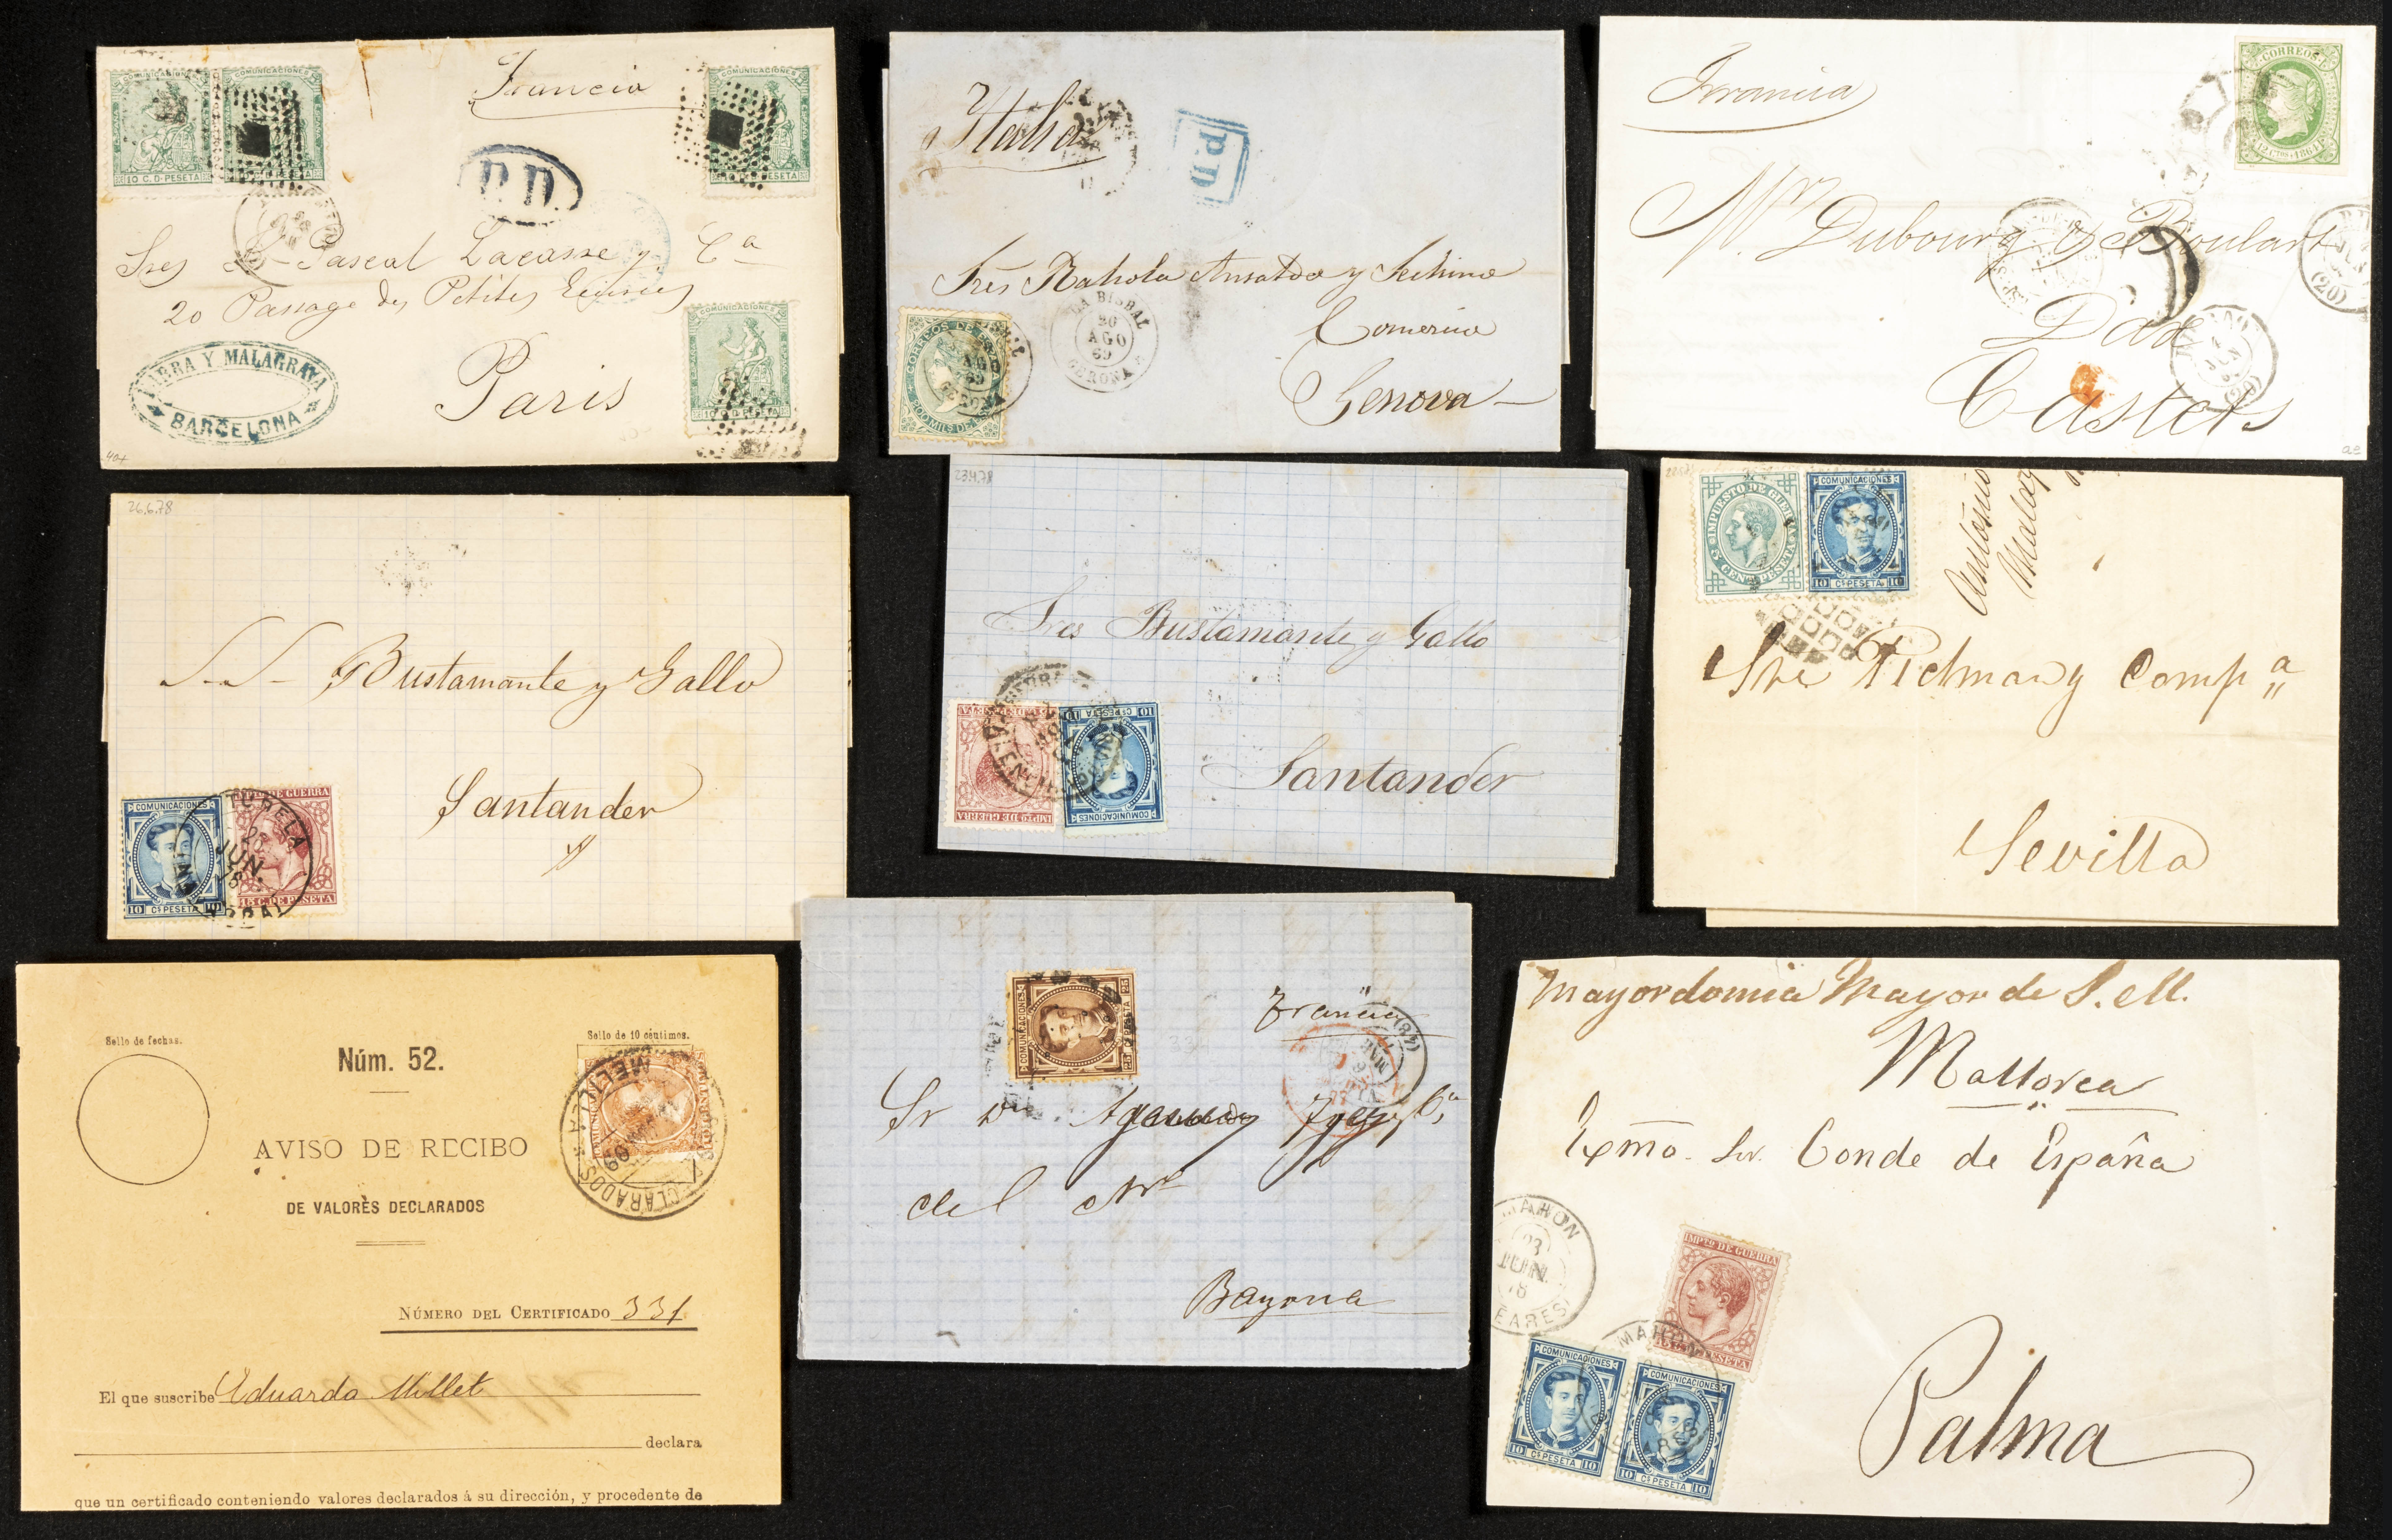 COMUNICACIONES
10 C. D. PESETA
COMUNICACIONES
COMUNICACIONES
10 C. D. PESETA
Francia
P.D.
Sres Pascal Lacasse y Cª
20 Passage des Petites Ecuries
Paris
COMUNICACIONES
10 C. D. PESETA
Y MALAGRAVA
BARCELONA
Italia
P.D
Sres Rahola Ansaldo y
Comercio
Genova
CORREOS DE ESPAÑA
200 MILS DE
LA BISBAL
20
AGO
69
GERONA
Francia
CORREOS
12 Ctos 1864
Mr Dubourg de Boulart
Dax
Castets
(20)
JUN
(20)
26.6.78
S. S. Bustamante y Gallo
Santander
COMUNICACIONES
10 Cs PESETA 10
IMPTO DE GUERRA
15 C. DE PESETA
TUDELA
JUN.
78
Sres Bustamante y Gallo
Santander
IMPTO DE GUERRA
COMUNICACIONES
10 Cs PESETA 10
IMPUESTO DE GUERRA
5 CENT. PESETA 5
COMUNICACIONES
10 Cs PESETA 10
Antonio
Sres Pickman y Compª
Sevilla
Sello de fechas.
Núm. 52.
Sello de 10 céntimos.
MELILLA
AVISO DE RECIBO
DE VALORES DECLARADOS
NÚMERO DEL CERTIFICADO 331
El que suscribe Eduardo Millet
declara
que un certificado conteniendo valores declarados á su dirección, y procedente de
COMUNICACIONES
25 Cs PESETA 25
Francia
Sr Dn
del
Bayona
Mayordomia Mayor de S. M.
Mallorca
Exmo. Sr. Conde de España
Palma
MAHON
23
JUN
78
BALEARES
IMPTO DE GUERRA
15 C. DE PESETA
MAHON
COMUNICACIONES
10 Cs PESETA 10
COMUNICACIONES
10 Cs PESETA 10